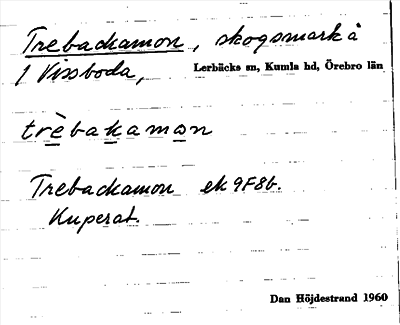 Trebackamon, skogsmark å
1 Vissboda, Lerbäcks sn, Kumla hd, Örebro län
trèbakamɷn
Trebackamon ek 9F8b.
Kuperat.
Dan Höjdestrand 1960